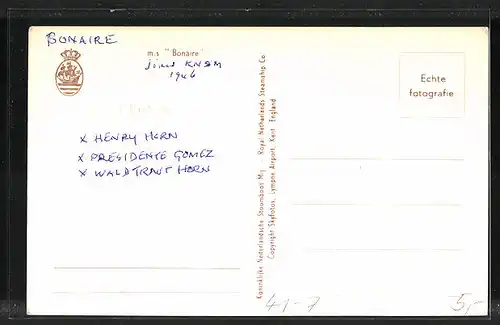 BONAIRE
m.s "Bonaire"
joined KNSM
1946
x HENRY HORN
x PRESIDENTE GOMEZ
x WALDTRAUT HORN
Koninklijke Nederlandsche Stoomboot Mij. - Royal Netherlands Steamship Co
Copyright Skyfotos, Lympne Airport, Kent England
Echte
fotografie
41-7
5,-